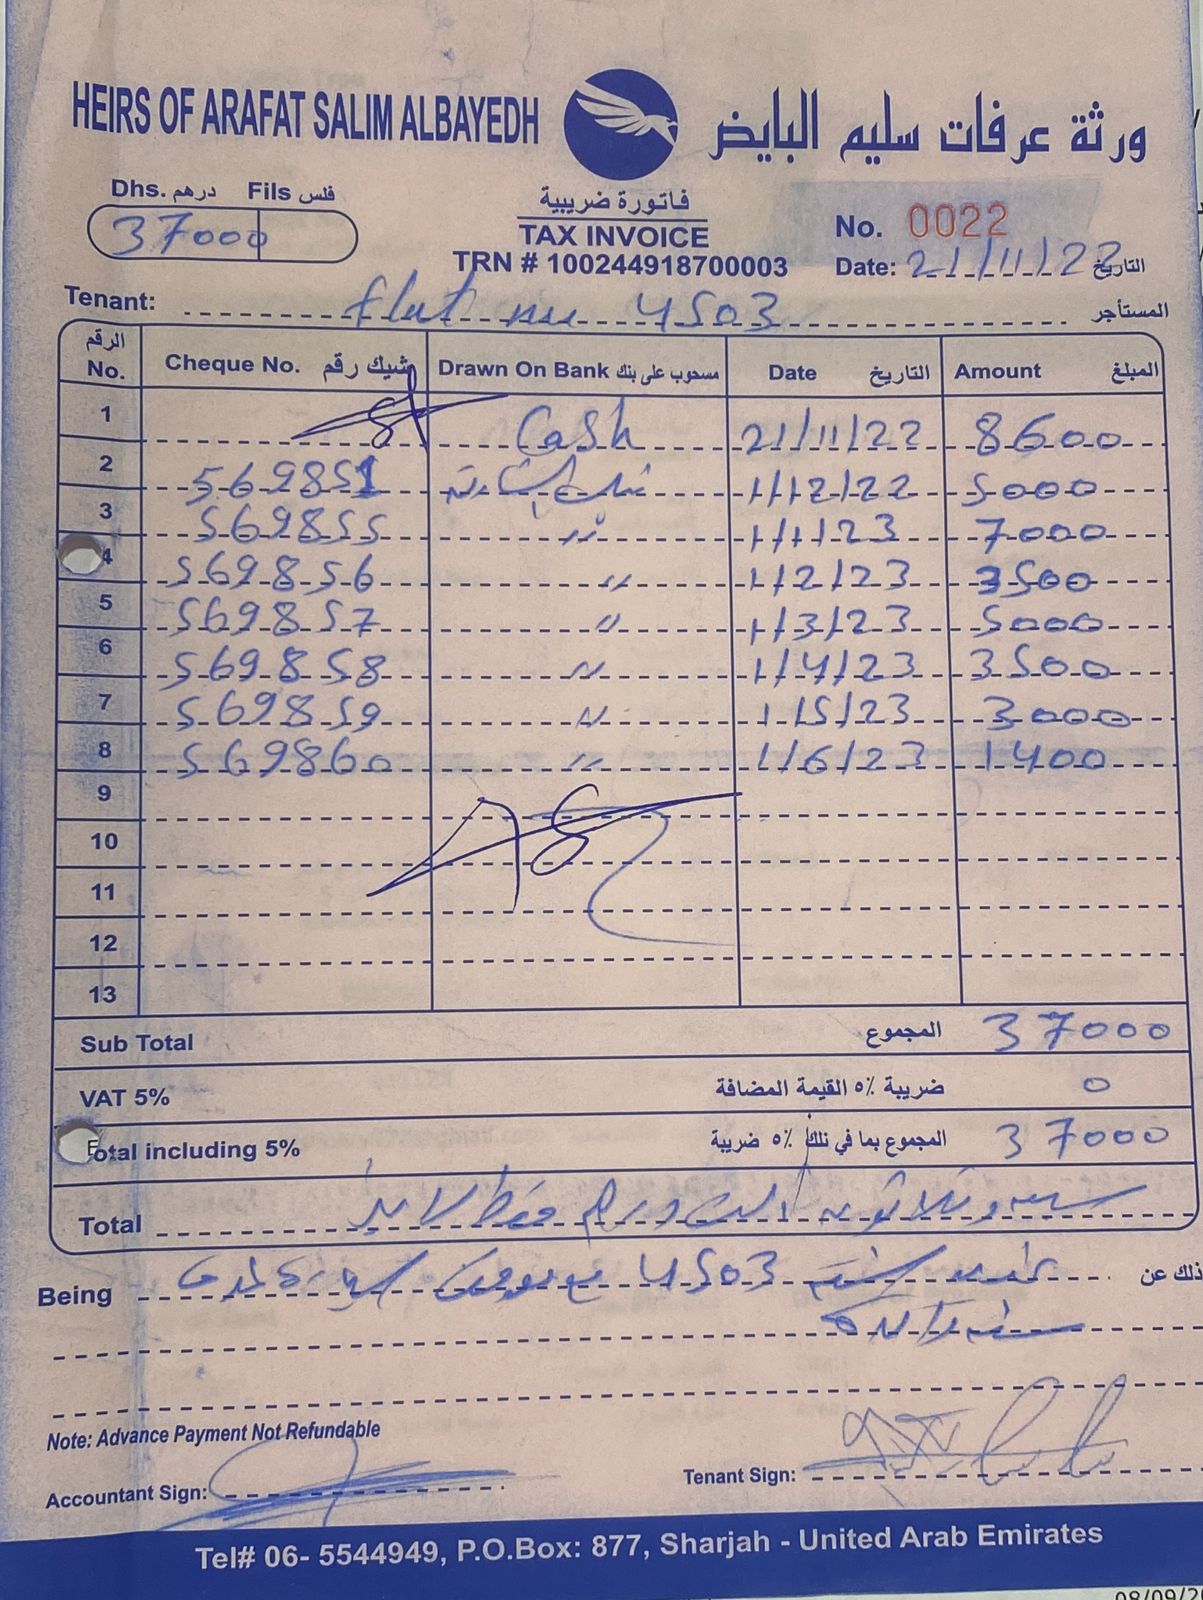 HEIRS OF ARAFAT SALIM ALBAYEDH ورثة عرفات سليم البايض
Dhs. درهم Fils فلس
37000
فاتورة ضريبية
TAX INVOICE
TRN # 100244918700003
No. 0022
Date: 21/11/22 التاريخ
Tenant: flat no 4503 المستأجر
الرقم No. Cheque No. شيك رقم Drawn On Bank مسحوب على بنك Date التاريخ Amount المبلغ
1 Cash 21/11/22 8600
2 569851 1/12/22 5000
3 569855 " 1/1/23 7000
4 569856 " 1/2/23 3500
5 569857 " 1/3/23 5000
6 569858 " 1/4/23 3500
7 569859 " 1/5/23 3000
8 569860 " 1/6/23 1400
9
10
11
12
13
Sub Total المجموع 37000
VAT 5% ضريبة ٥٪ القيمة المضافة 0
Total including 5% المجموع بما في ذلك ٥٪ ضريبة 37000
Total سبعة وثلاثون الف درهم فقط لا غير
Being 4503 ذلك عن
Note: Advance Payment Not Refundable
Accountant Sign:
Tenant Sign:
Tel# 06- 5544949, P.O.Box: 877, Sharjah - United Arab Emirates